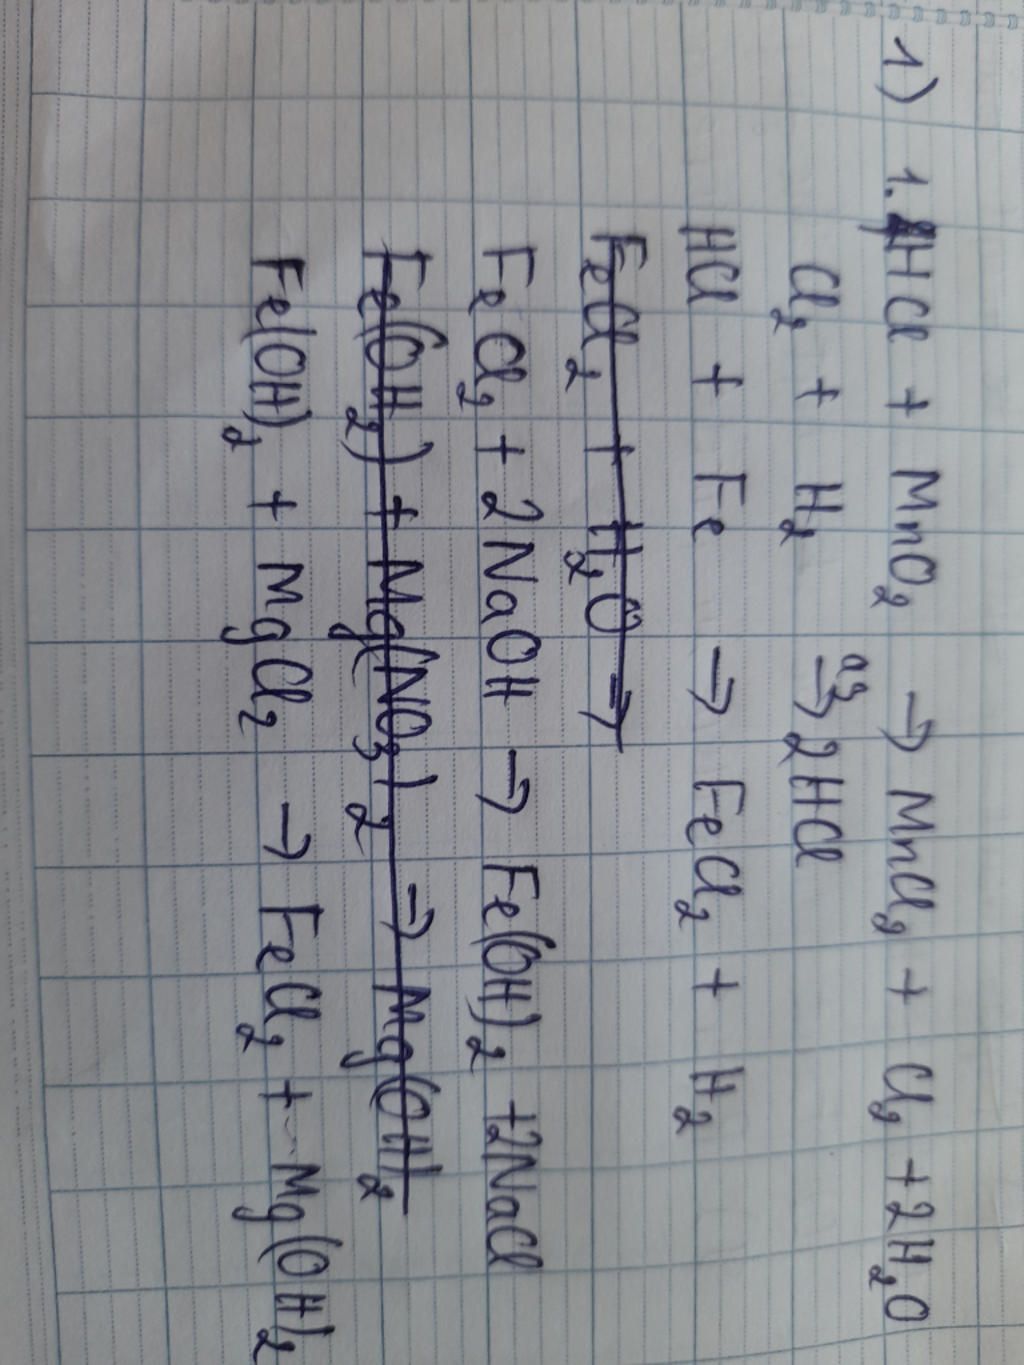 1) 1. 4HCl + MnO₂ → MnCl₂ + Cl₂ + 2H₂O
Cl₂ + H₂ → 2HCl
HCl + Fe → FeCl₂ + H₂
FeCl₂ + H₂O →
FeCl₂ + 2NaOH → Fe(OH)₂ + 2NaCl
Fe(OH₂) + Mg(NO₃)₂ → Mg(OH)₂
Fe(OH)₂ + MgCl₂ → FeCl₂ + Mg(OH)₂